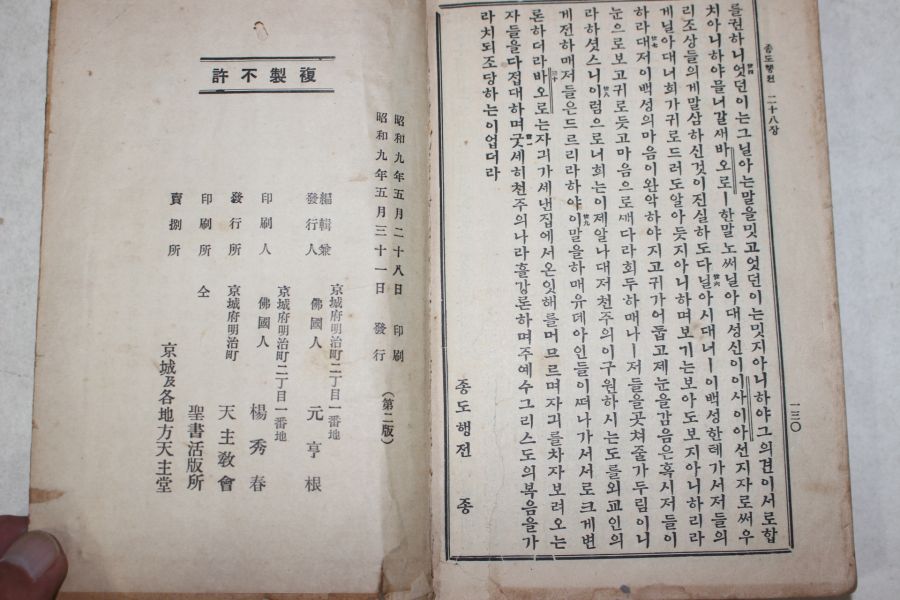 종도행전 二十八장
一三〇
를권하니廿四엇던이는그닐아는말을밋고엇던이는밋지아니하야그의견이서로합
치아니하야믈너갈새바오로ㅣ한말노써닐아대성신이이사이아선지자로써우
리조상들의게말삼하신것이진실하도다닐아시대廿六너ㅣ이백성한테가서저들의
게닐아대너희가귀로드러도알아듯지아니하며보기는보아도보지아니하리라
하라廿七대저이백성의마음이완악하야지고귀가어둡고제눈을감음은혹시저들이
눈으로보고귀로듯고마음으로깨다라회두하매나ㅣ저들을곳쳐줄가두림이니
라하셧스니廿八이럼으로너희는이제알나대저천주의이구원하시는도를외교인의
게전하매저들은드르리라하야廿九이말을하매유데아인들이떠나가서서로크게변
론하더라三十바오로는자긔가세낸집에서온잇해를머므르며자긔를차자보려오는
자들을다접대하며卅一굿세히천주의나라흘강론하며주예수그리스도의복음을가
라치되조당하는이업더라
종도행전 종
複製不許
昭和九年五月二十八日 印刷
昭和九年五月三十一日 發行
(第二版)
京城府明治町二丁目一番地
編輯兼發行人 佛國人 元亨根
京城府明治町二丁目一番地
印刷人 佛國人 楊秀春
京城府明治町
發行所 天主敎會
印刷所 仝 聖書活版所
賣捌所 京城及各地方天主堂